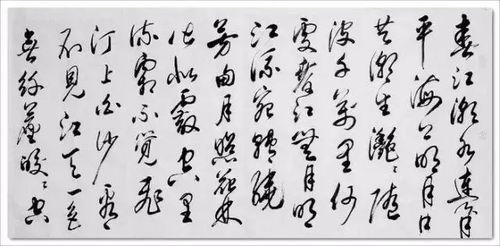 春江潮水連海
平海上明月
共潮生灩〻隨
波千萬里何
處春江無月明
江流宛轉繞
芳甸月照花林
皆似霰空里
流霜不覺飛
汀上白沙看
不見江天一色
無纖塵皎〻空